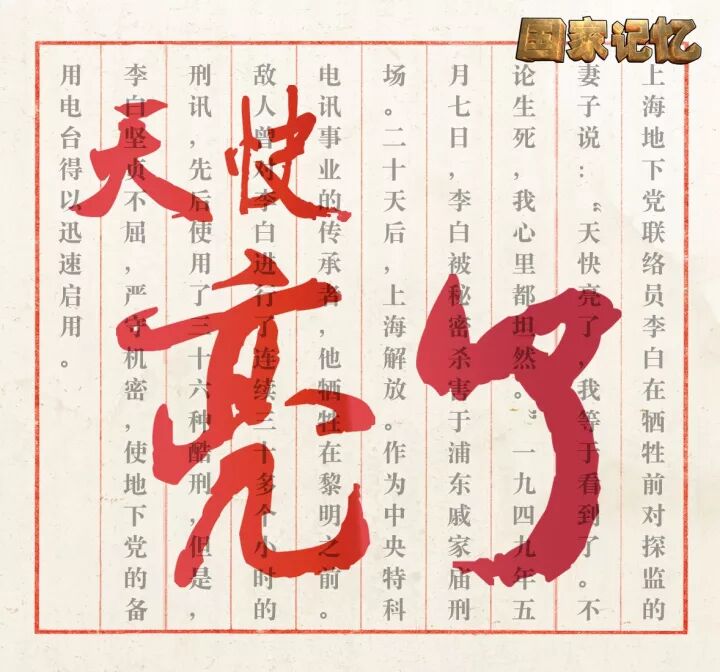 国家记忆
天快
亮了
上海地下党联络员李白在牺牲前对探监的
妻子说：“天快亮了，我等于看到了。不
论生死，我心里都坦然。”一九四九年五
月七日，李白被秘密杀害于浦东戚家庙刑
场。二十天后，上海解放。作为中央特科
电讯事业的传承者，他牺牲在黎明之前。
敌人曾对李白进行了连续三十多个小时的
刑讯，先后使用了三十六种酷刑，但是，
李白坚贞不屈，严守机密，使地下党的备
用电台得以迅速启用。